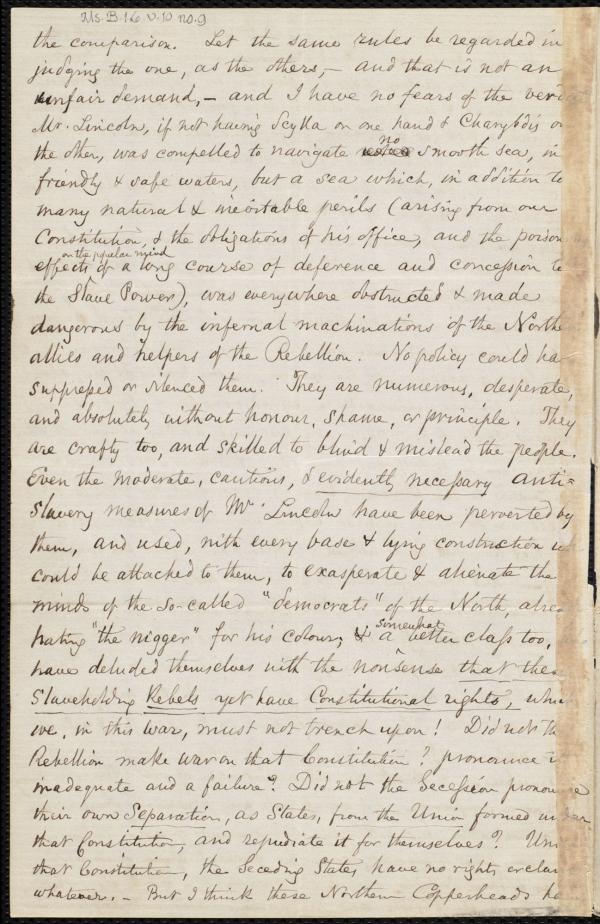 Ms. B. 1.6 v. 10 no. 9
the comparison. Let the same rules be regarded in
judging the one, as the others, – and that is not an
unfair demand, – and I have no fears of the
Mr. Lincoln, if not having Scylla on one hand & Charybdis on
the other, was compelled to navigate no smooth sea, in
friendly & safe waters, but a sea which, in addition to
many natural & inevitable perils (arising from our
Constitution, & the obligations of his office, and the poison
on the popular mind
effects of a long course of deference and concession to
the Slave Power), was everywhere obstructed & made
dangerous by the infernal machinations of the North
allies and helpers of the Rebellion. No policy could ha
suppressed or silenced them. They are numerous, desperate,
and absolutely without honour, shame, or principle. They
are crafty too, and skilled to blind & mislead the people.
Even the moderate, cautious, & evidently necessary anti=
Slavery measures of Mr. Lincoln have been perverted by
them, and used, with every base & lying construction
could be attached to them, to exasperate & alienate the
minds of the so-called "democrats" of the North, alre
hating "the nigger" for his colour; & a somewhat better class too,
have deluded themselves with the nonsense that the
Slaveholding Rebels yet have Constitutional rights, whi
we, in this war, must not trench upon! Did not th
Rebellion make war on that Constitution? pronounce i
inadequate and a failure? Did not the Secession pronounce
their own Separation, as States, from the Union formed under
that Constitution, and repudiate it for themselves? Un
that Constitution, the Seceding States have no rights or clai
whatever. – But I think these Northern Copperheads ha